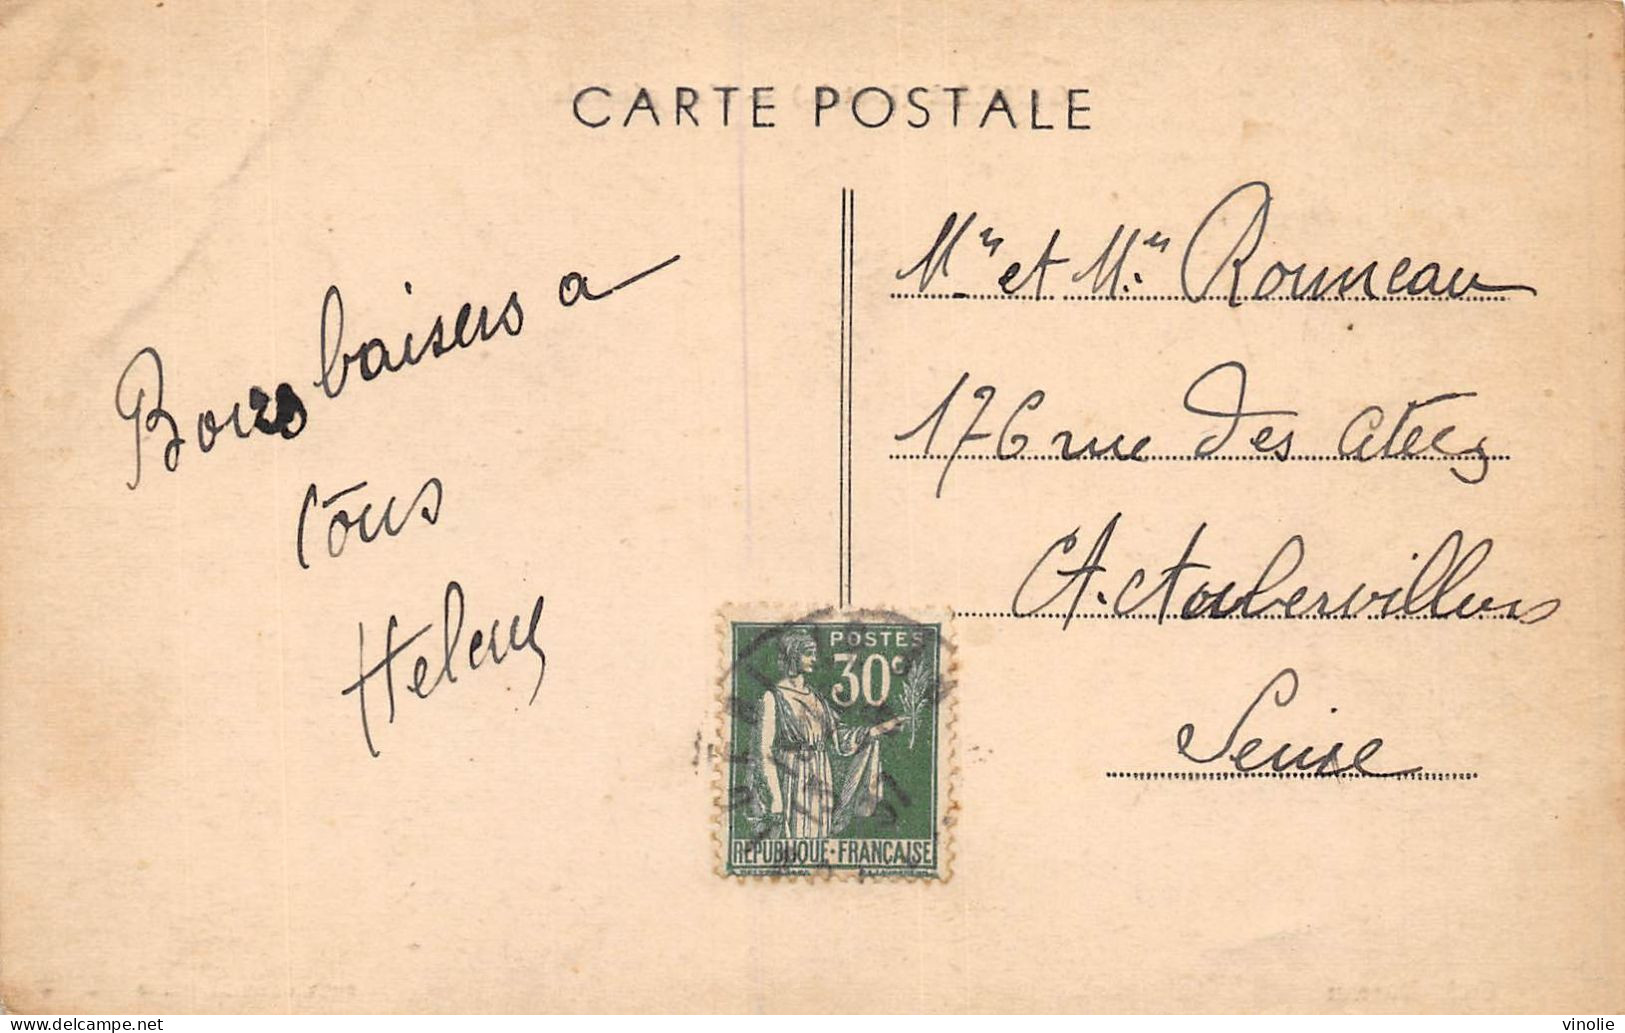 CARTE POSTALE
Bons baisers a
tous
Helene
Mr et Mme Rouneau
176 rue des Cités
A. Aubervilliers
Seine
POSTES
30c
REPUBLIQUE·FRANÇAISE
vinolie